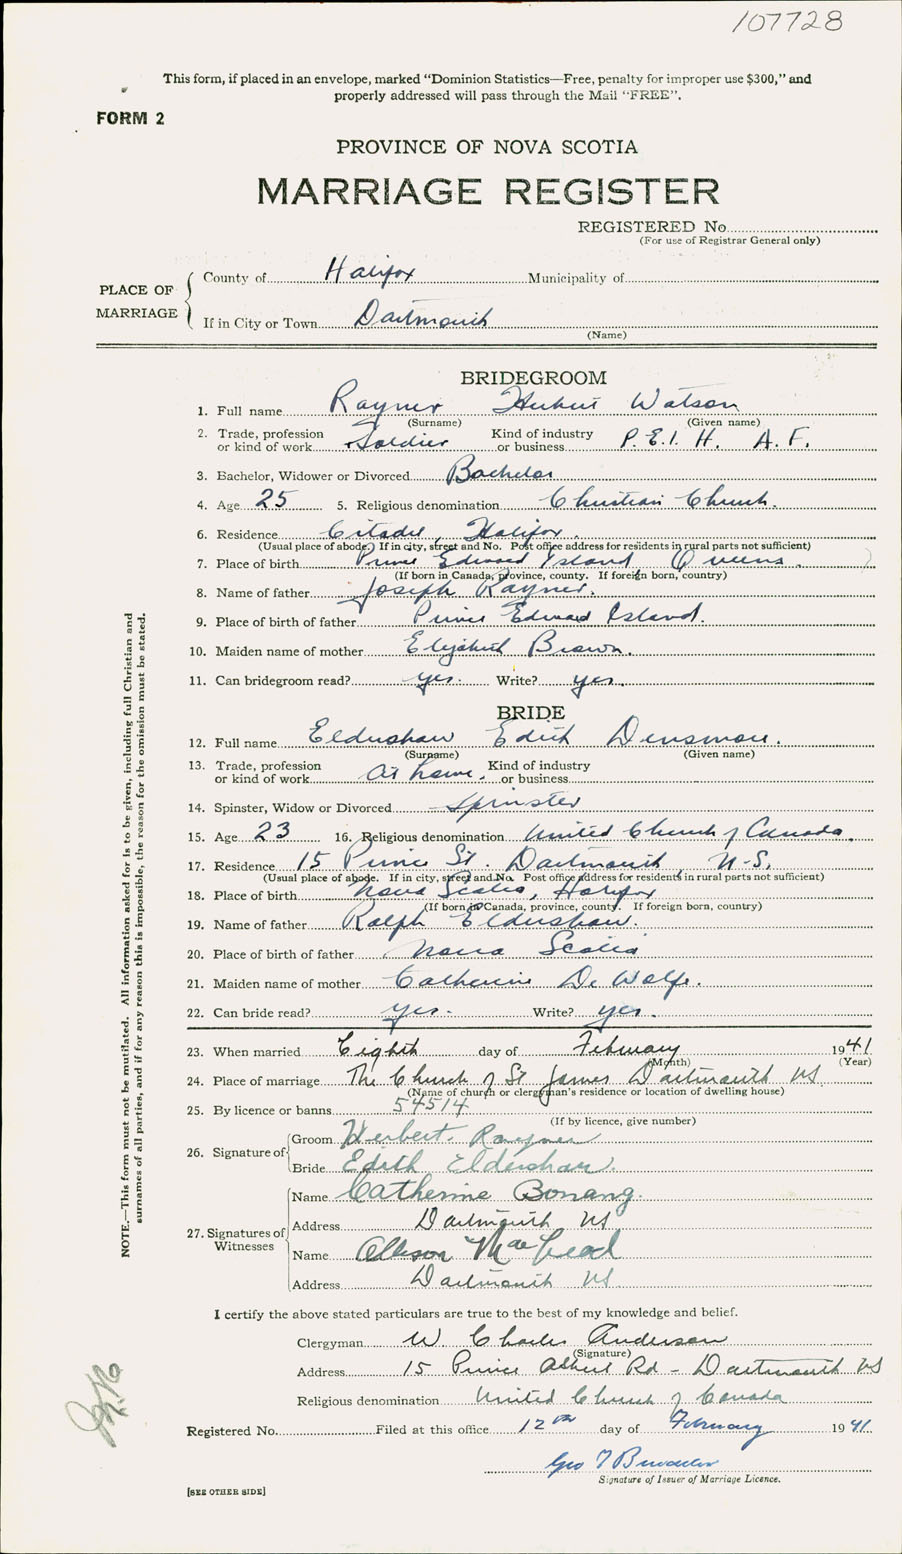 107728
This form, if placed in an envelope, marked “Dominion Statistics—Free, penalty for improper use $300,” and
properly addressed will pass through the Mail “FREE”.
FORM 2
PROVINCE OF NOVA SCOTIA
MARRIAGE REGISTER
REGISTERED No
(For use of Registrar General only)
PLACE OF MARRIAGE
County of Halifax Municipality of
If in City or Town Dartmouth
(Name)
BRIDEGROOM
1. Full name Rayner Herbert Watson
(Surname) (Given name)
2. Trade, profession or kind of work Soldier Kind of industry or business P.E.I. H. A.F.
3. Bachelor, Widower or Divorced Bachelor
4. Age 25 5. Religious denomination Christian Church.
6. Residence Citadel, Halifax.
(Usual place of abode. If in city, street and No. Post office address for residents in rural parts not sufficient)
7. Place of birth Prince Edward Island Queens.
(If born in Canada, province, county. If foreign born, country)
8. Name of father Joseph Rayner.
9. Place of birth of father Prince Edward Island.
10. Maiden name of mother Elizabeth Brown.
11. Can bridegroom read? yes. Write? yes.
BRIDE
12. Full name Eldershaw Edith Densmore.
(Surname) (Given name)
13. Trade, profession or kind of work At home. Kind of industry or business
14. Spinster, Widow or Divorced Spinster
15. Age 23 16. Religious denomination United Church of Canada.
17. Residence 15 Prince St. Dartmouth, N.S.
(Usual place of abode. If in city, street and No. Post office address for residents in rural parts not sufficient)
18. Place of birth Nova Scotia, Halifax
(If born in Canada, province, county. If foreign born, country)
19. Name of father Ralph Eldershaw.
20. Place of birth of father Nova Scotia
21. Maiden name of mother Catherine De Wolfe.
22. Can bride read? yes. Write? yes.
23. When married Eighth day of February 1941
(Month) (Year)
24. Place of marriage The Church of St James Dartmouth NS
(Name of church or clergyman's residence or location of dwelling house)
25. By licence or banns 54514
(If by licence, give number)
26. Signature of
Groom Herbert Rayner
Bride Edith Eldershaw.
27. Signatures of Witnesses
Name Catherine Bonang.
Address Dartmouth NS
Name Allison MacLeod
Address Dartmouth NS
I certify the above stated particulars are true to the best of my knowledge and belief.
Clergyman W Charles Anderson
(Signature)
Address 15 Prince Albert Rd - Dartmouth NS
Religious denomination United Church of Canada
Registered No. Filed at this office 12th day of February 1941
Geo
Signature of Issuer of Marriage Licence.
[SEE OTHER SIDE]
NOTE.—This form must not be mutilated. All information asked for is to be given, including full Christian and
surnames of all parties, and if for any reason this is impossible, the reason for the omission must be stated.